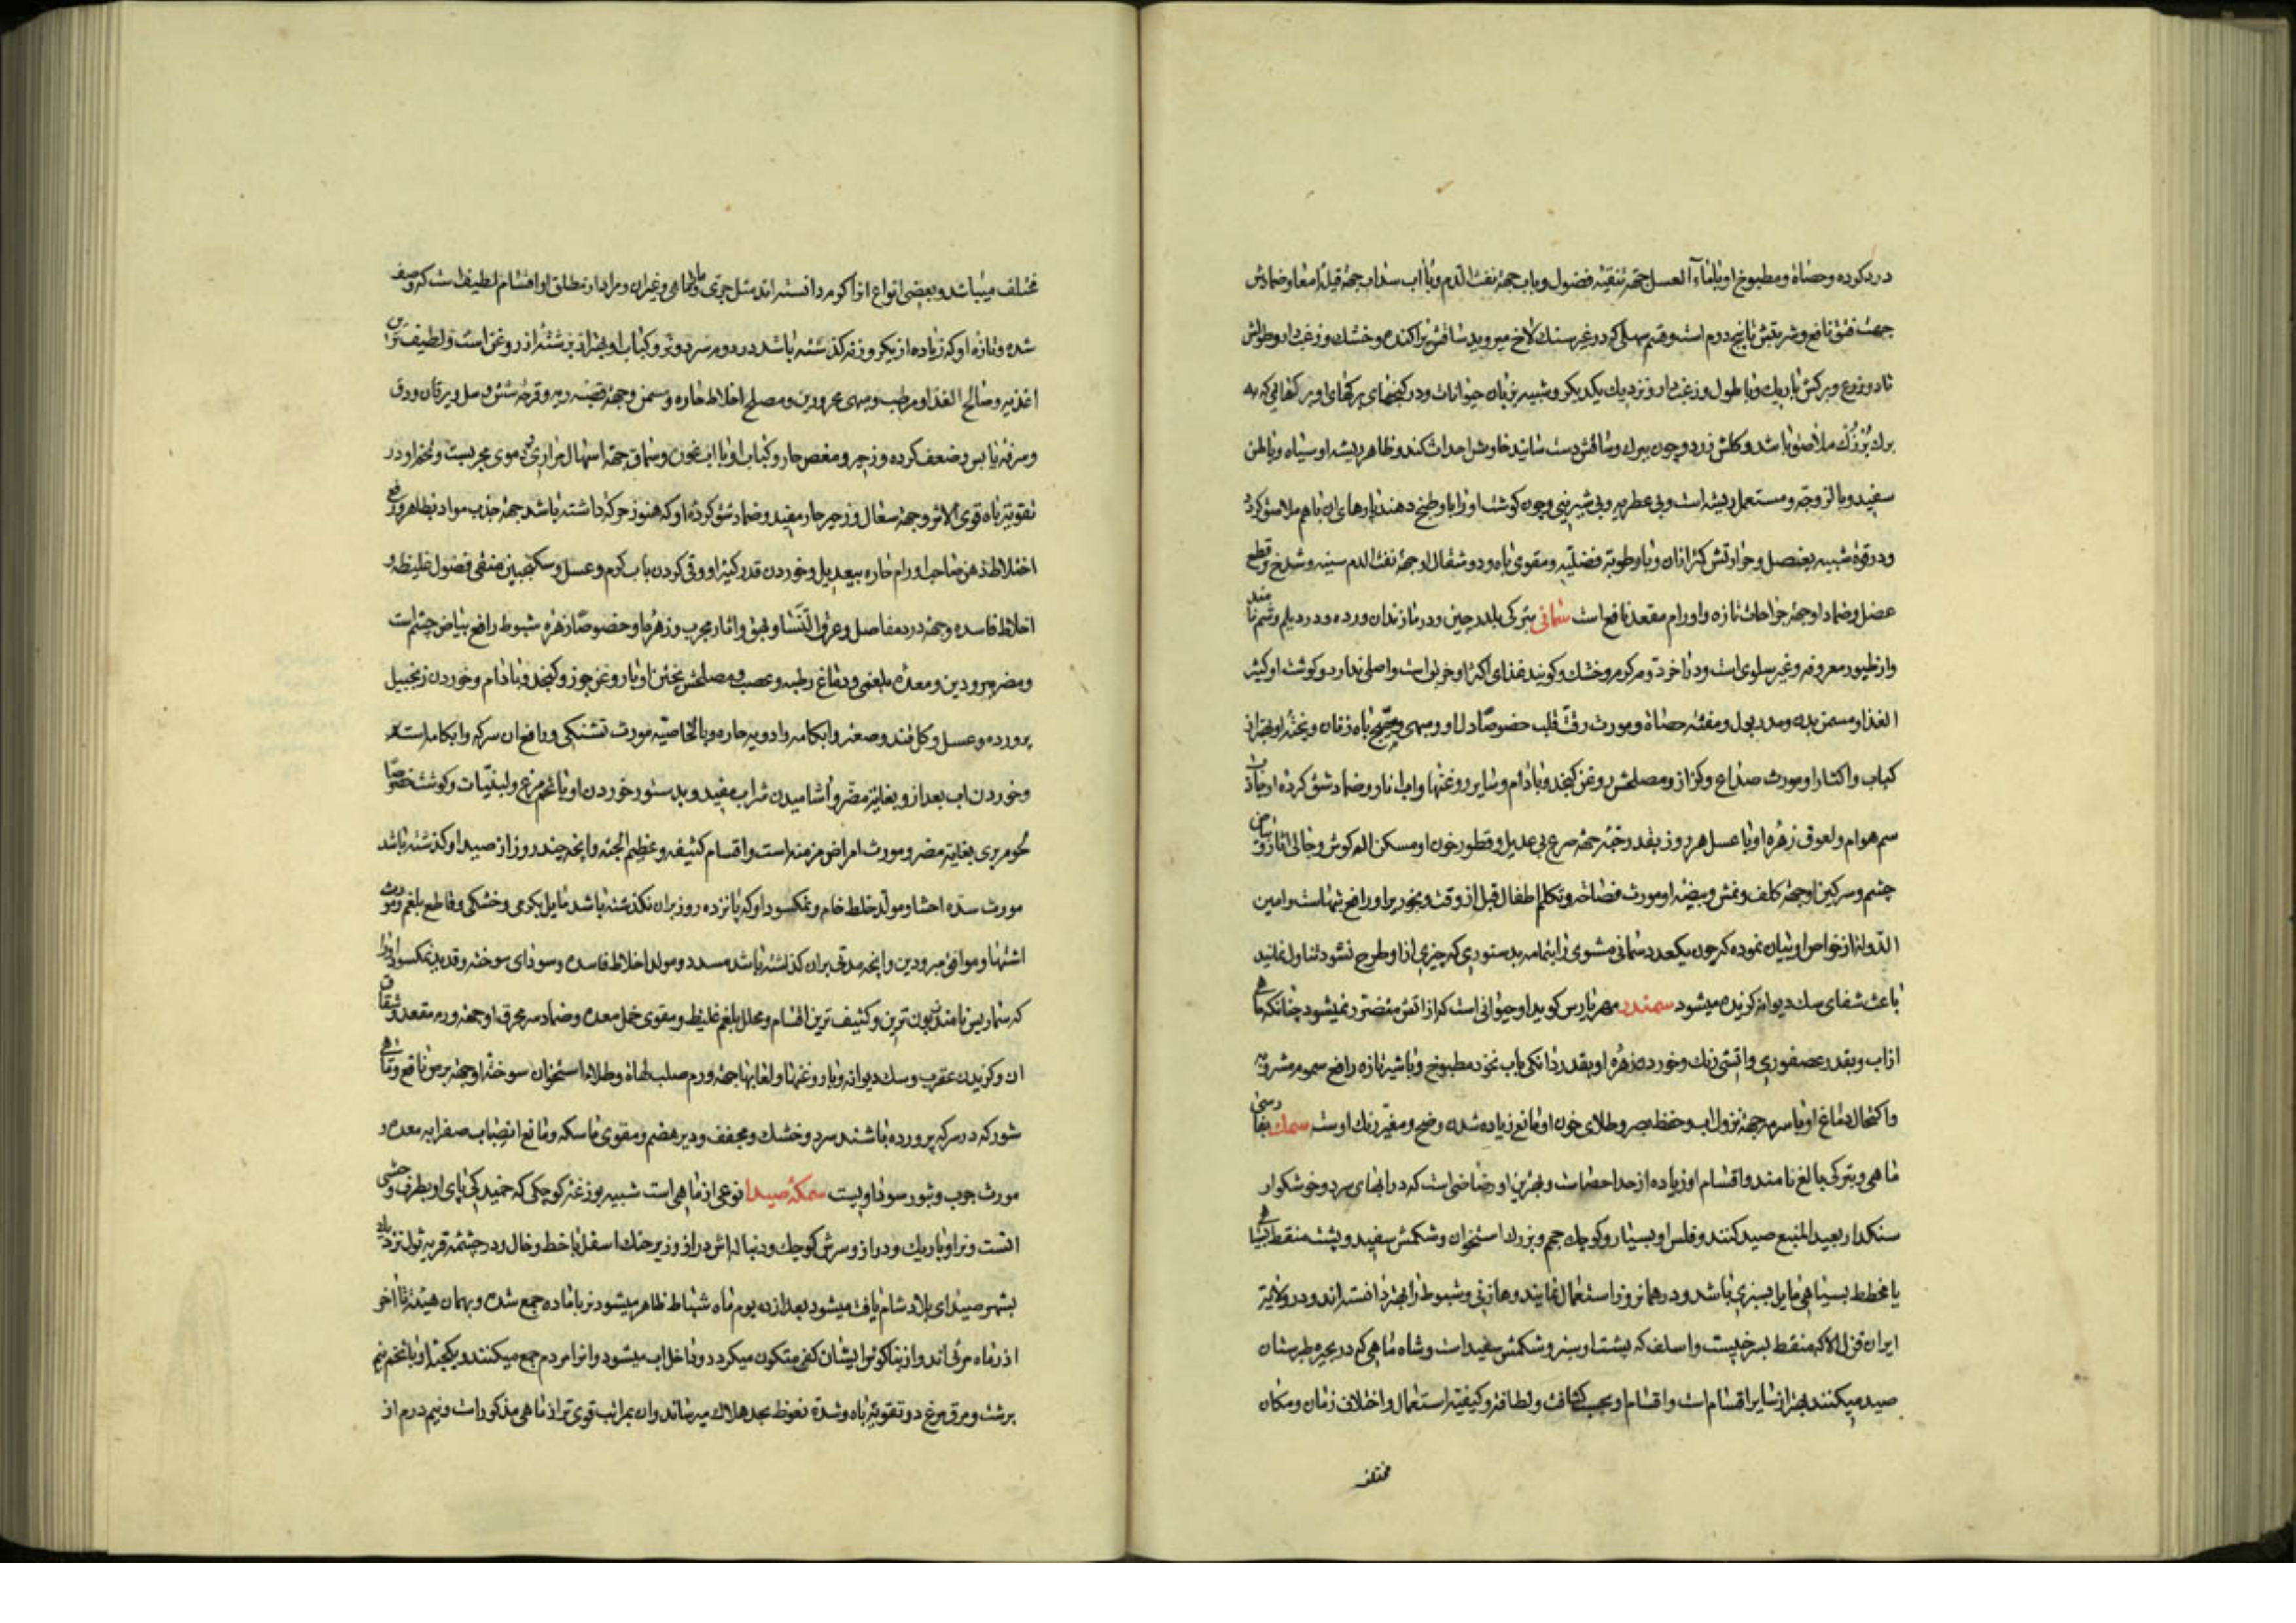 درد کرده و حصاة و مطبوخ او با ماء العسل جهة تنقیه فضول و با آب جهة نفث الدم و با آب سداب جهة قیلة امعا و ضمادش
جهت فتق نافع و شربتش تا پنج درم است و قسم سهلی که در غیر سنک لاخ میروید ساقش پراکنده و خشک و زغب دار و طولش
تا دو زرع و برکش باریک و با طول و زغب دار و نزدیک یکدیکر و شبیه بزبان حیوانات و در کنجهای برکهای او برکهائی که به
برک بزرک ملاصق باشد و کلش زرد و چون ببرک و ساقش دست رسانند خارش احداث کند و ظاهر ریشه او سیاه و باطن
سفید و با لزوجة و مستعمل ریشه است و بی عطریه و بی شیرینی و چون کوشت او را با او طبخ دهند پارهای ان باهم ملاصق کردد
و در قوة شبیه بعنصل و حرارتش کمتر از ان و با رطوبة فضلیه و مقوی باه و دو مثقال او جهة نفث الدم سینه و شدخ و قطع
عضل و ضماد او جهة جراحات تازه و اورام مقعد نافع است سمانی بترکی بلدرچین و در مازندران ورده و در دیلم وشم نامند
و از طیور معروفه و غیر سلوی است و در آخر دوم کرم و خشک و کویند غذای اکثر او خربق است و اصلی ندارد و کوشت او کثیر
الغذا و مسمن بدن و مدر بول و مفتت حصاة و مورث رقت قلب خصوصا دل او و مبهی و مهیج باه زنان و پختهٔ او بهتر از
کباب و اکثار او مورث صداع و کزاز و مصلحش روغن کنجد و بادام و سایر روغنها و آب انار و ضماد شق کرده او جاذب
سم هوام و لعوق زهره او با عسل هر روز بقدر حبه جهة صرع بی عدیل و قطور خون او مسکن الم کوش و جالی اثار و بیاض
چشم و سرکین او جهة کلف و نمش و بیضه او مورث فصاحة و تکلم اطفال قبل از وقت و بخور پر او رافع تبهاست و امین
الدوله از خواص او بیان نموده که چون یکعدد سمانی مشوی را بتمامه بدستوری که چیزی از او طرح نشود تناول نمایند
باعث شفای سک دیوانه کزیده میشود سمندر مهر نارس کوید او حیوانی است که از اتش متضرر نمیشود چنانکه ماهی
از اب و بقدر عصفوری و اتشی رنک و خوردن زهره او بقدر دانکی باب نخود مطبوخ و با شیر تازه رافع سموم مشروبه
و اکتحال دماغ او با سرمه جهة نزول اب و حفظ بصر و طلای خون او مانع زیاده شدن وضح و مغیر رنک اوست سمک بفارسی
ماهی و بترکی بالغ نامند و اقسام او زیاده از حد احصاست و بهترین او رضراضی است که در ابهای سرد و خوشکوار
سنکدار بعید المنبع صید کنند و فلس او بسیار و کوچک جم و بزرک استخوان و شکمش سفید و پشت منقط بسیاهی
یا مخطط بسیاهی مایل بسبزی باشد و در همانروز استعمال نمایند و هازبی و شبوط را بهتر دانسته اند و در ولایة
ایران قزل الا که منقط بسرخیست و اسلف که پشت او سبز و شکمش سفید است و شاه ماهی که در بحیره طبرستان
صید میکنند بهتر از سایر اقسام است و اقسام او بحسب کثافت و لطافت و کیفیة استعمال و اختلاف زمان و مکان
مختلف
مختلف میباشد و بعضی انواع او را کرم دانسته اند مثل جری و مارماهی و غیر ان و مراد از مطلق او اقسام لطیف است که وصف
شده و تازه او که زیاده از یکروز نه کذشته باشد در دوم سرد و تر و کباب او بهتر از برشتهٔ از روغن است و لطیف ترین
اغذیه و صالح الغذا و مرطب و مبهی محرورین و مصلح اخلاط حاره و مسمن و جهة قصبه ریه و قرحه شش و سل و یرقان و دق
و سرفه یابس و ضعف کرده و زحیر و مغص حار و کباب او با اب غوره و سماق جهة اسهال مراری و دموی مجربست و تخم او در
تقویة باه قوی الاثر و جهة سعال و زحیر حار مفید و ضماد شق کردهٔ او که هنوز حرکة داشته باشد جهة جذب مواد بظاهر و رفع
اختلاط ذهن صاحب اورام حاره بیعدیل و خوردن قدر کثیر او و قی کردن باب کرم و عسل و سکنجبین منقی فضول غلیظه و
اخلاط فاسده و جهة درد مفاصل و عرق النسا و بهق و اثار مجرب و زهرها و خصوصا زهره شبوط رافع بیاض چشم است
و مضر مبرودین و معده بلغمی و دماغ رطبه و عصب و مصلحش پختن او با روغن جوز و کنجد و بادام و خوردن زنجبیل
پرورده و عسل و کل قند و صعتر و ابکامه و ادویه حاره و بالخاصیة مورث تشنکی و رافع ان سرکه و ابکامه است و
و خوردن اب بعد از و بغایة مضر و اشامیدن شراب مفید و بدستور خوردن او با تخم مرغ و لبنیات و کوشت خصوصا
لحوم بری بغایة مضر و مورث امراض مزمنه است و اقسام کثیفه و عظیم الجثه و انچه چند روز از صید او کذشته باشد
مورث سدهٔ احشا و مولد خلط خام و نمکسود او که پانزده روز بران نکذشته باشد مایل بکرمی و خشکی و قاطع بلغم و مورث
اشتها و موافق مبرودین و انچه مدتی بران کذشته باشد مسدد و مولد اخلاط فاسده و سودای سوخته و قدید نمکسود او را
که سماریس نامند زبون ترین و کثیف ترین اقسام و محلل بلغم غلیظ و مقوی خمل معده و ضماد سر محرق او جهة ورم مقعد و شقاق
ان و کزیدن عقرب و سک دیوانه و با روغنها و لعابها جهة ورم صلب لهاة و طلاء استخوان سوختهٔ او جهة برص نافع و ماهی
شور که در سرکه پرورده باشند سرد و خشک و مجفف و دیر هضم و مقوی ماسکه و مانع انصباب صفرا به معده و
مورث جرب و بثور سوداویست سمکهٔ صیدا نوعی از ماهی است شبیه بوزغهٔ کوچکی که خمیدکی پای او بطرف وحشی
انست و نر او باریک و دراز و سرش کوچک و دنباله اش دراز و زیر حنک اسفل با خط و خال و در چشمه قریه تول نزدیک
بشهر صیدای بلاد شام یافت میشود بعد از ده یوم ماه شباط ظاهر میشود نر با ماده جمع شده و بهمان هیئة تا آخر
اذرماه مرئی اند و از تناکح ایشان کفی متکون میکردد و داخل اب میشود و انرا مردم جمع میکنند و یکحبهٔ او با تخم نیم
برشت و مرق مرغ در تقویة باه و شدة نعوظ بحد هلاک میرساند و ان بمراتب قوی تر از ماهی مذکور است و نیم درم از